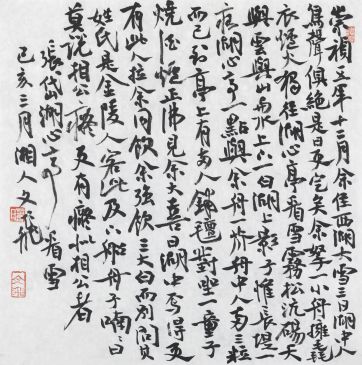 崇禎五年十二月余住西湖大雪三日湖中人
鳥聲俱絕是日更定矣余拏一小舟擁毳
衣爐火獨往湖心亭看雪霧凇沆碭天
與雲與山與水上下一白湖上影子惟長堤一
痕湖心亭一點與余舟一芥舟中人兩三粒
而已到亭上有兩人鋪氈對坐一童子
燒酒爐正沸見余大喜曰湖中焉得更
有此人拉余同飲余強飲三大白而別問其
姓氏是金陵人客此及下船舟子喃喃曰
莫說相公癡更有癡似相公者
張岱湖心亭看雪
己亥三月湘人文飛